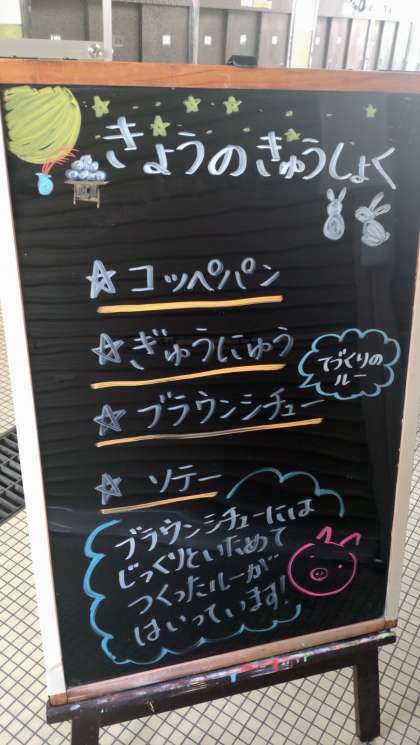 きょうのきゅうしょく
☆コッペパン
☆ぎゅうにゅう
てづくりの
ルー
☆ブラウンシチュー
☆ソテー
ブラウンシチューには
じっくりといためて
つくったルーが
はいっています!